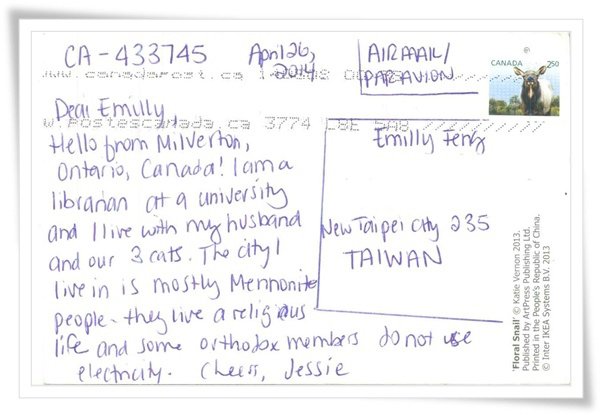 CA-433745 April 26,
2014
AIRMAIL/
PAR AVION
CANADA 250
www.canadapost.ca
Dear Emilly,
w.postescanada.ca 3774 L8E 5A8
Hello from Milverton,
Ontario, Canada! I am a
librarian at a university
and I live with my husband
and our 3 cats. The city I
live in is mostly Mennonite
people - they live a religious
life and some orthodox members do not use
electricity. Cheers, Jessie
Emilly Feng
New Taipei City 235
TAIWAN
'Floral Snail' © Katie Vernon 2013.
Published by ArtPress Publishing Ltd.
Printed in the People's Republic of China.
© Inter IKEA Systems B.V. 2013